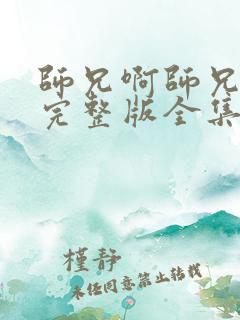 師兄啊師兄
完整版全集
槿静
未经同意禁止转载